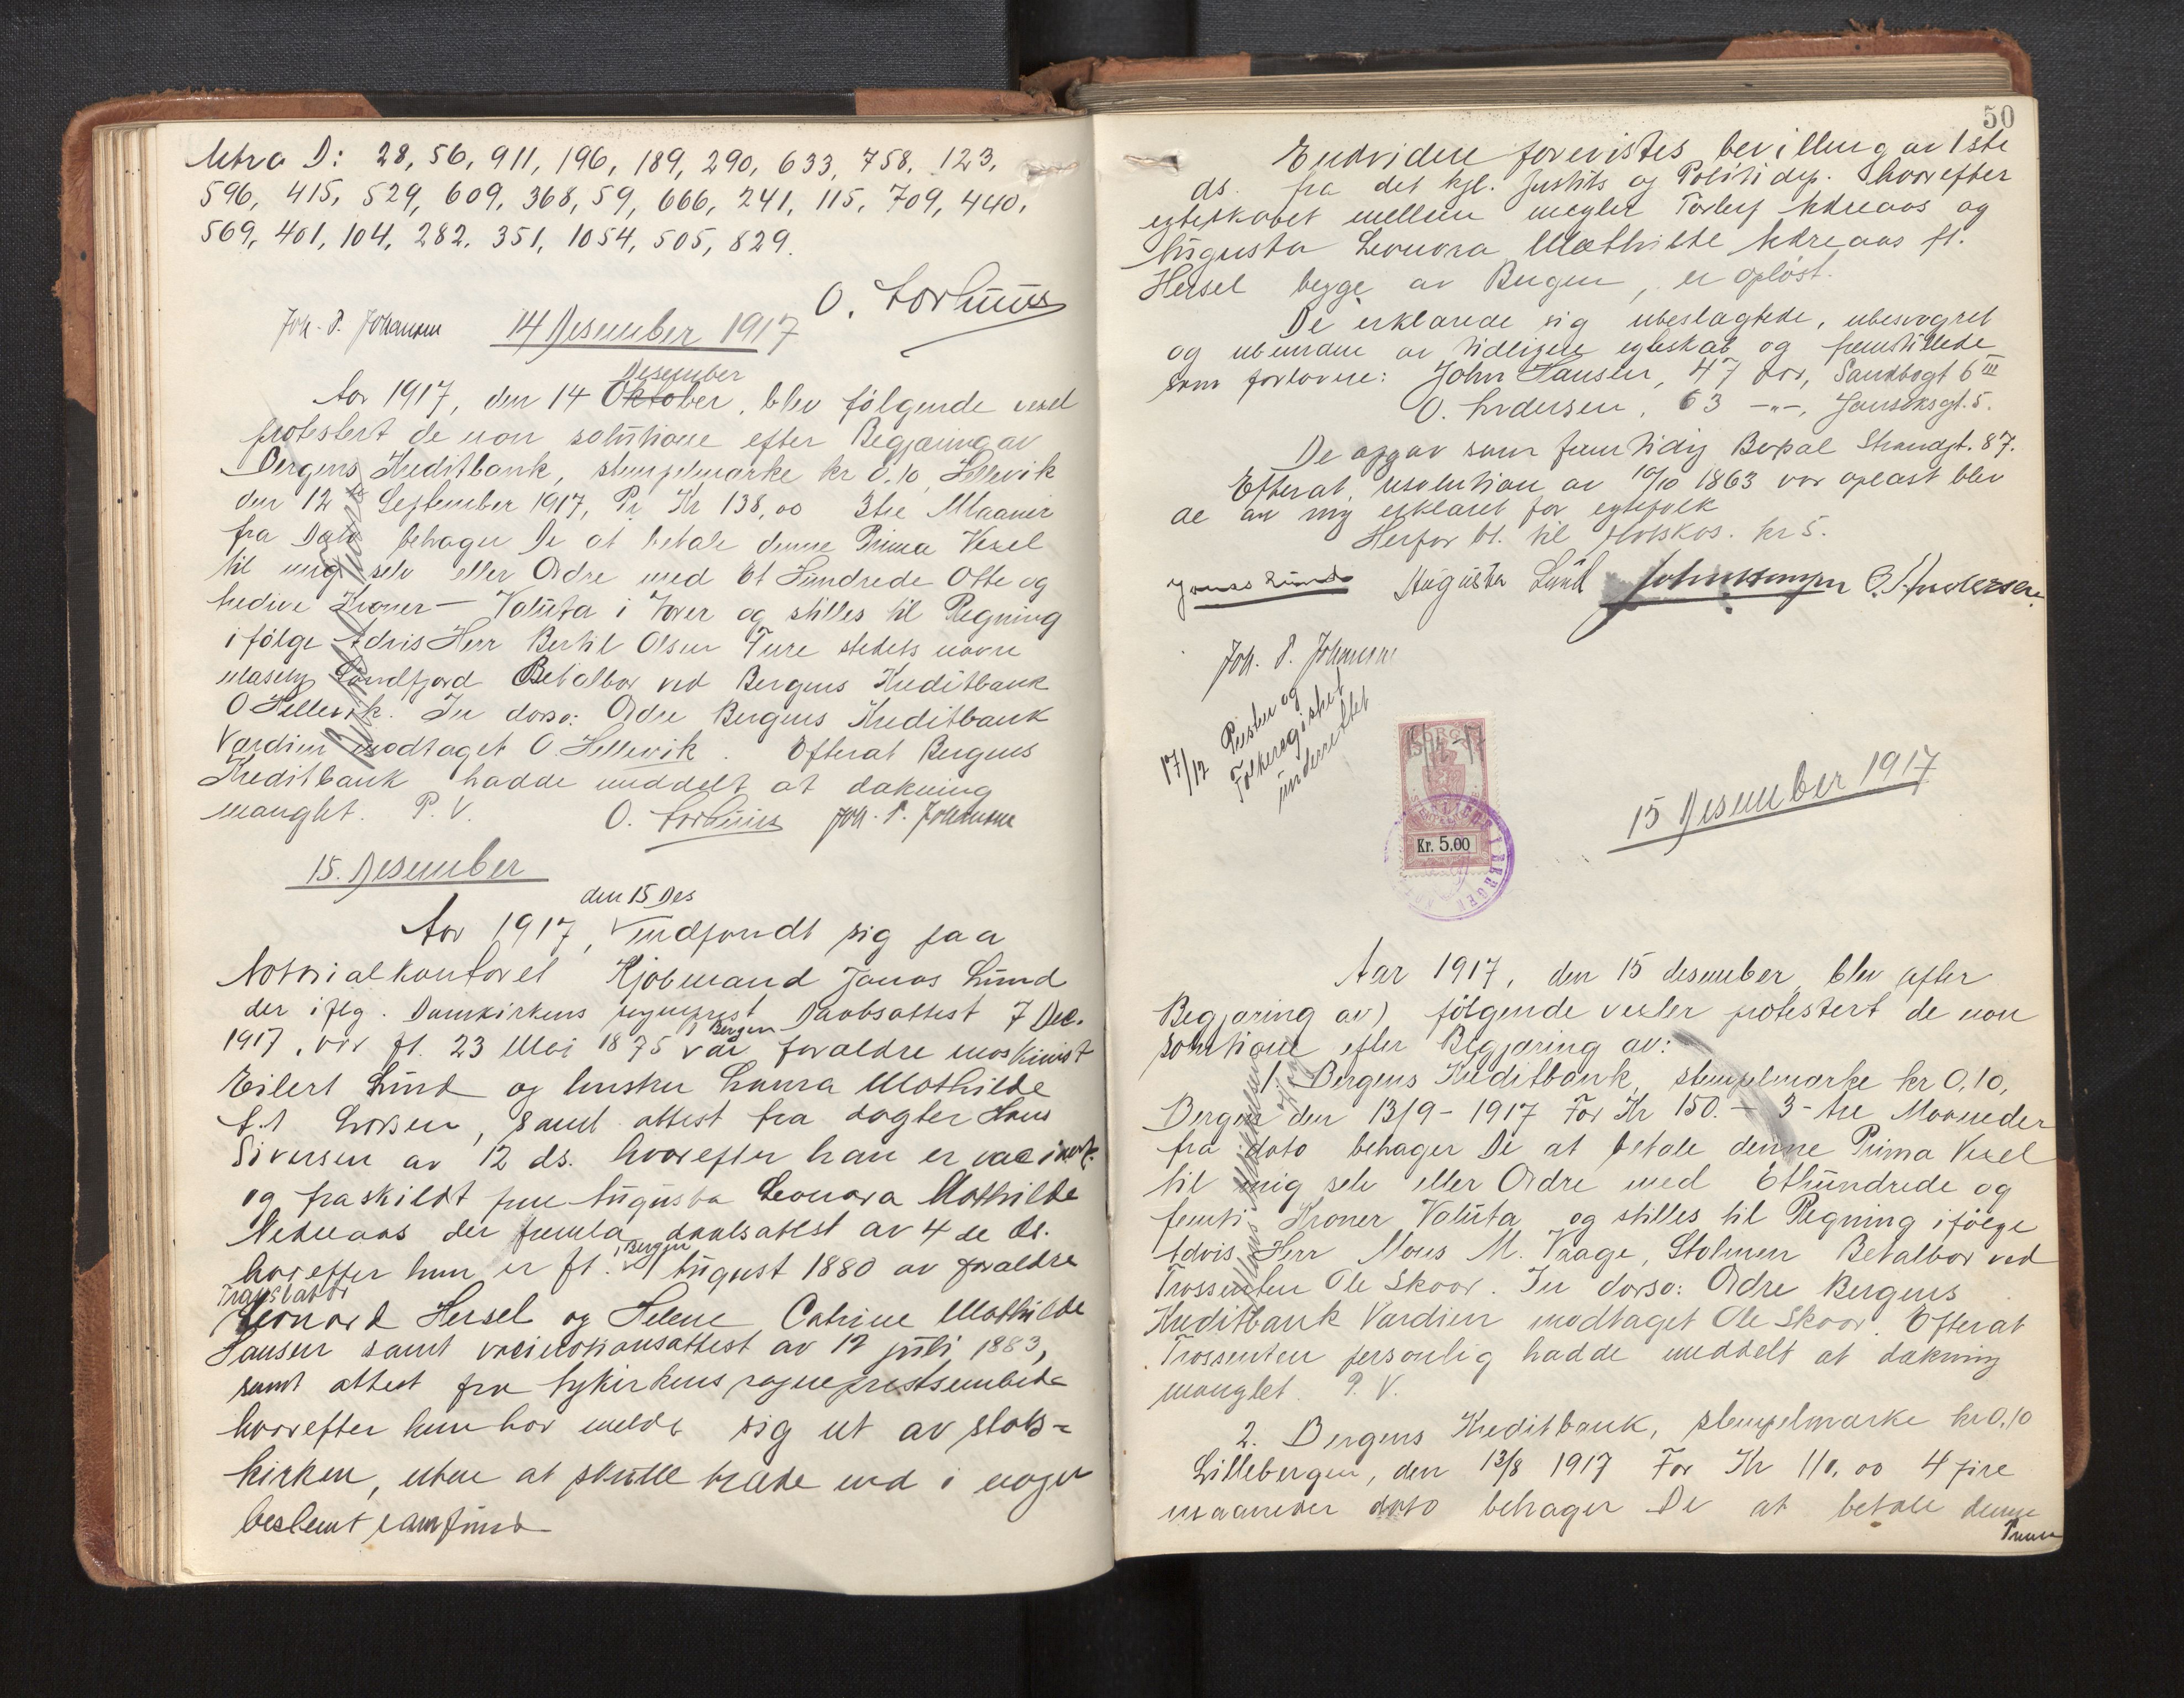 Litra D: 28, 56, 911, 196, 189, 290, 633, 758, 123,
596, 415, 529, 609, 368, 59, 666, 241, 115, 709, 440,
569, 401, 104, 282, 351, 1054, 505, 829.
O. Lorhuus
Joh. P. Johansen 14 Desember 1917
Desember
Aar 1917, den 14 Oktober, blev følgende vexel
protestert de non solutione efter Begjæring av
Bergens Kreditbank, stempelmærke kr 0.10, Hellevik
den 12te September 1917, Pr Kr 138,00 3tre Maaner
fra Dato behager De at betale denne Prima Vexel
til mig selv eller Ordre med Et Hundrede Otte og
tredive Kroner — Valuta i Varer og stilles til Regning
ifølge Advis Herr Bertil Olsen Fure stedets navn
Søndfjord Betalbar ved Bergens Kreditbank
O Hellevik. In dorso: Ordre Bergens Kreditbank
Værdien modtaget O. Hellevik. Efterat Bergens
Kreditbank hadde meddelt at dækning
manglet. P. V. O. Lorhuus Joh. P. Johansen
15. Desember
den 15 Des
Aar 1917, indfandt sig paa
Notarialkontoret Kjøbmand Jonas Lund
der iflg. Domkirkens sogneprest Daabsattest 7 Dec.
1917, var ft. 23 Mai 1875 i Bergen var forældre maskinist
Eilert Lund og hustru Laura Mathilde
f.t Larsen, samt attest fra dogter Hans
Siversen av 12 ds. hvorefter han er vacinert.
og fraskildt frue Augusta Leonora Mathilde
Nedreaas der daabsattest av 4de ds.
hvorefter hun er ft. i Bergen 1 August 1880 av forældre
Translatør
Leonard Hersel og Helene Catrine Mathilde
Hansen samt vaccinationsattest av 12 juli 1883,
samt attest fra Nykirkens sogneprestsembede
hvorefter hun har meldt sig ut av stats-
kirken, uten at skulle træde ind i noget
bestemt samfund
50
Endvidere forevistes bevilling av 1ste
ds. fra det kgl. Justits og Politidep. hvorefter
egteskabet mellem megler Torleif Nedreaas og
Augusta Leonora Mathilde Nedreaas ft.
Hersel begge av Bergen, er opløst.
De erklærede sig ubeslægtede, ubesvogret
og ubundne av tidligere egteskab og fremstillede
som forlovere: John Hansen, 47 aar, Sandbogt 6 III
O. Andersen, 63 -"-, Jonsoksgt. 5.
De opgav som fremtidig Bopæl Strandgt. 87.
Efterat resolution av 10/10 1863 var oplæst blev
de av mig erklæret for egtefolk
Herfor bt. til Statskas. kr 5.
Jonas Lund Augusta Lund John Hansen O. Andersen
Joh. P. Johansen
17/12 Presten og
Folkeregistret
underrettet
15/12-17
NORGE
Kr. 5.00
15 Desember 1917
Aar 1917, den 15 desember, blev efter
Begjæring av) følgende vexler protestert de non
solutione efter Begjæring av:
1. Bergens Kreditbank, stempelmærke kr 0,10,
Bergen den 13/9- 1917 For Kr 150.— 3-tre Maaneder
fra dato behager De at betale denne Prima Vexel
til mig selv eller Ordre med Ethundrede og
femti Kroner Valuta og stilles til Regning ifølge
Advis Herr Mons M. Vaage, Stolmen Betalbar ved
Trassenten Ole Skaar. In dorso: Ordre Bergens
Kreditbank Værdien modtaget Ole Skaar. Efterat
Trassenten personlig hadde meddelt at dækning
manglet. P. V.
2. Bergens Kreditbank, stempelmærke kr 0,10
Lillebergen, den 13/8 1917 For Kr 110,00 4 fire
maaneder dato behager De at betale denne
Prima